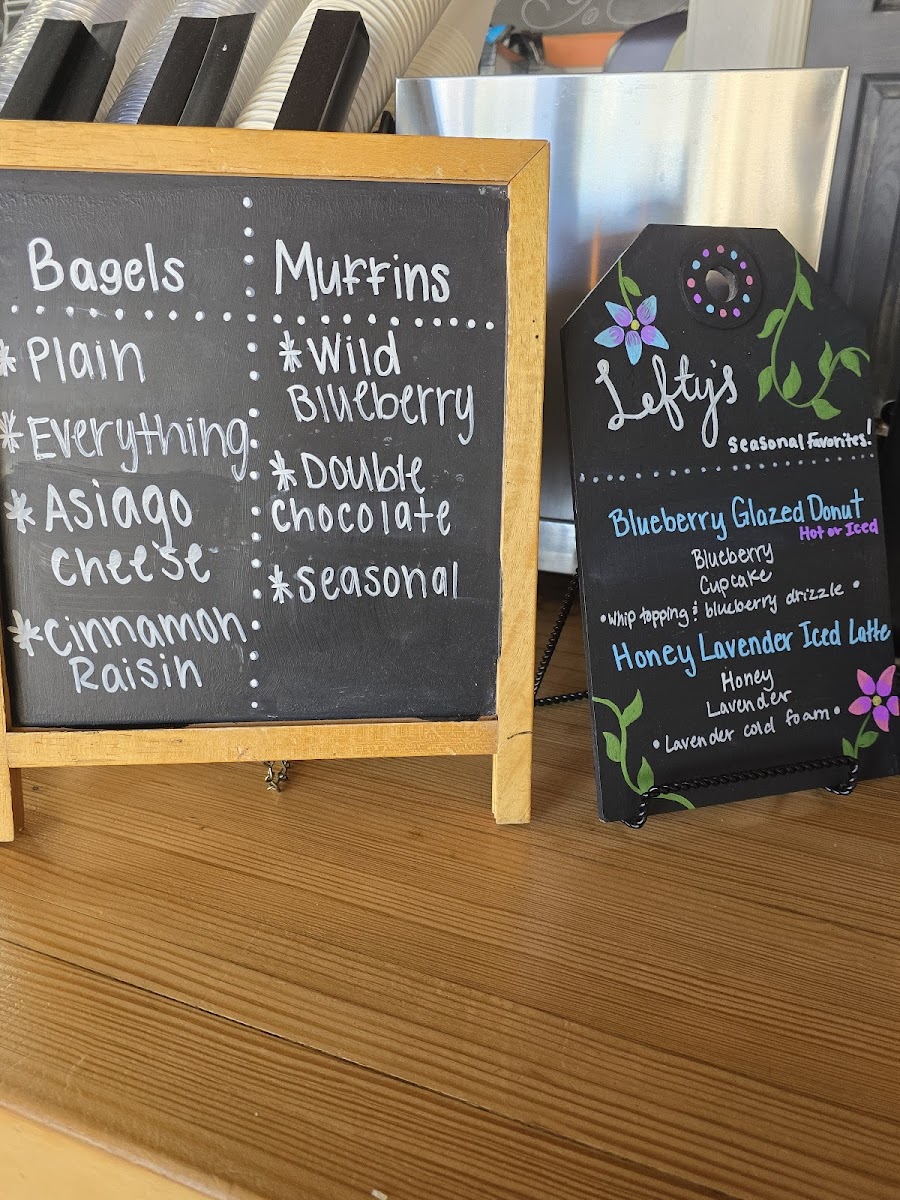 Bagels
*Plain
*Everything
*Asiago
Cheese
*Cinnamon
Raisin
Muffins
*Wild
Blueberry
*Double
Chocolate
*Seasonal
Lefty's
Seasonal Favorites!
Blueberry Glazed Donut
Hot or Iced
Blueberry
Cupcake
•Whip topping & blueberry drizzle•
Honey Lavender Iced Latte
Honey
Lavender
•Lavender cold foam•